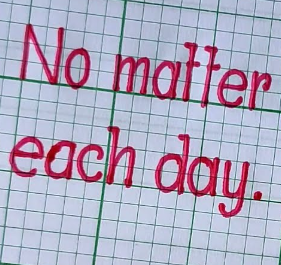 No matter
each day.